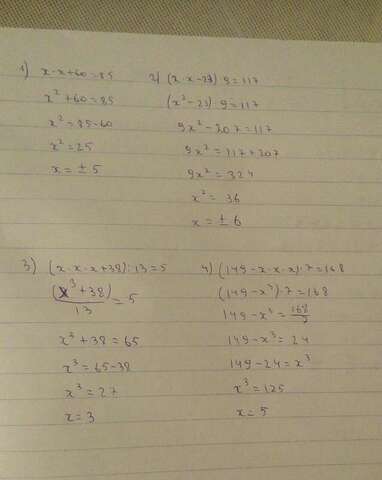 1) x·x+60=85
x²+60=85
x²=85-60
x²=25
x=±5
2) (x·x-23) 9=117
(x²-23) 9=117
9x²-207=117
9x²=117+207
9x²=324
x²=36
x=±6
3) (x·x·x+38):13=5
(x³+38)/13=5
x³+38=65
x³=65-38
x³=27
x=3
4) (149-x·x·x)·7=168
(149-x³)·7=168
149-x³=168/7
149-x³=24
149-24=x³
x³=125
x=5